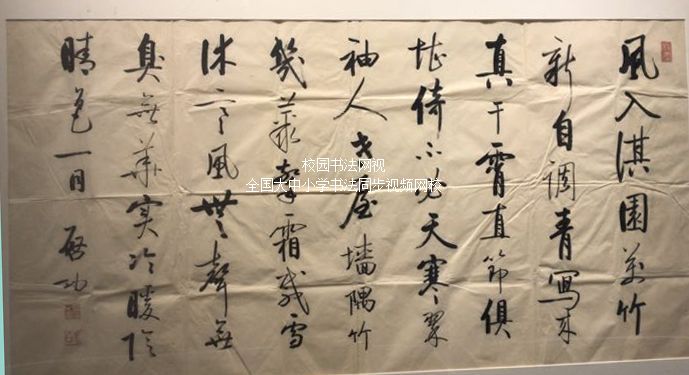 風入淇園萬竹
新自調青寫來
真干霄直節俱
堪倚不必天寒翠
袖人老屋墻隅竹
幾叢霜雪
休言風無聲無
臭無華實冷暖陰
晴色一同
啓功
校园书法网视
全国大中小学书法同步视频网校